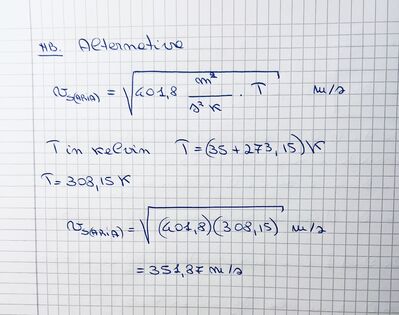 NB. Alternativa
v_S(ARIA) = √(401,8 m²/s²K · T) m/s
T in kelvin T = (35 + 273,15) K
T = 308,15 K
v_S(ARIA) = √((401,8)(308,15)) m/s
= 351,87 m/s